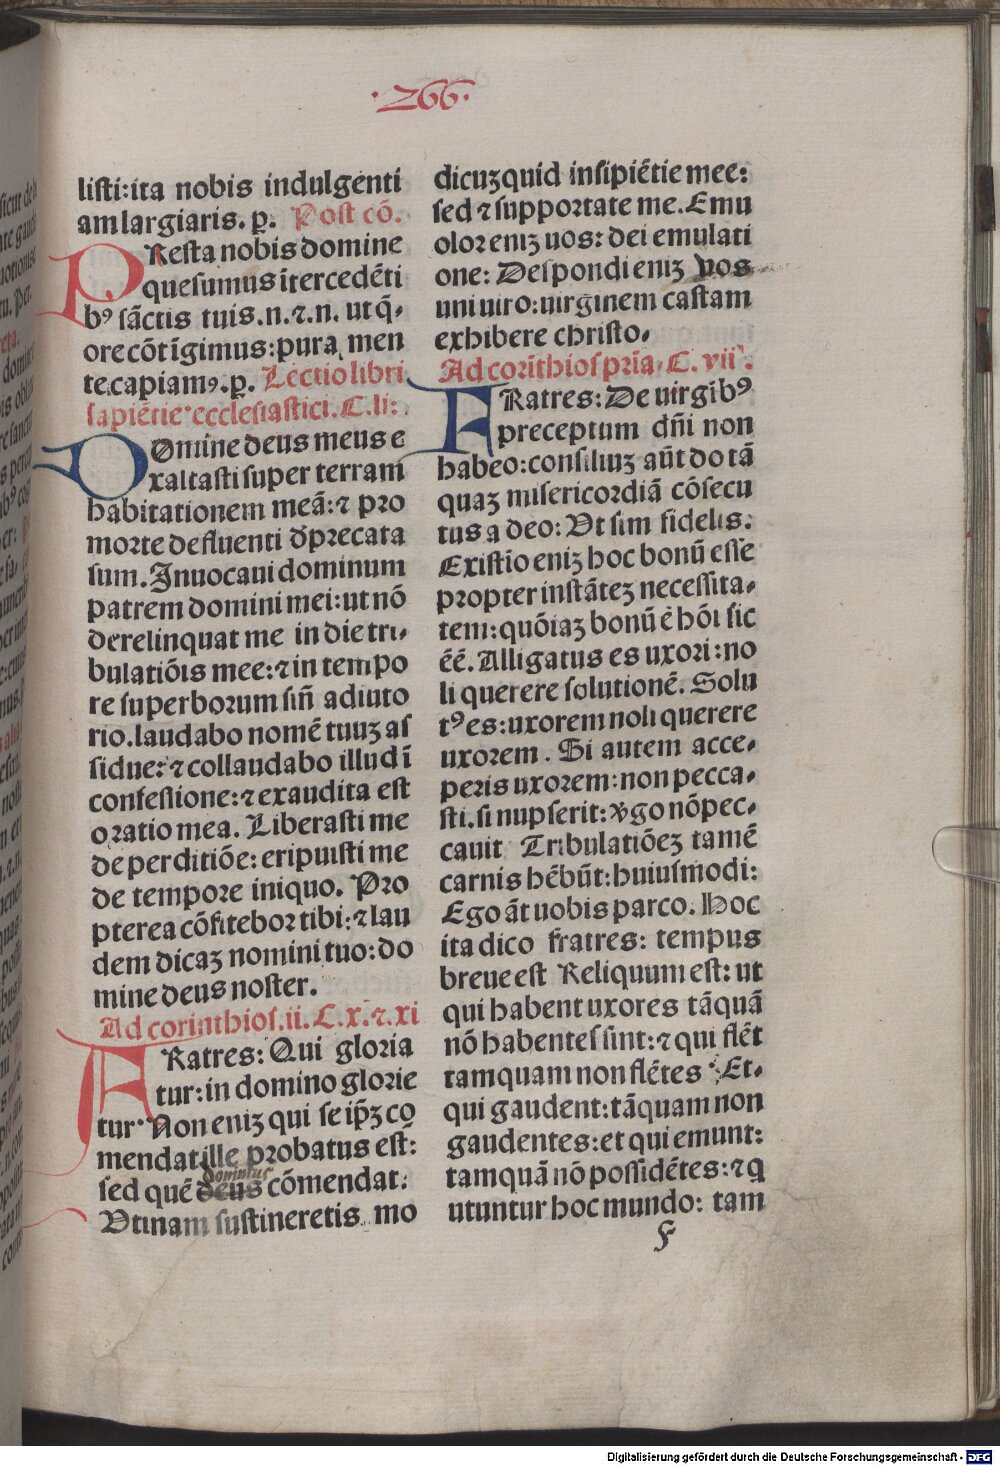 ·266·
listi:ita nobis indulgenti
am largiaris. p. Post cō.
PResta nobis domine
quesumus ītercedēti
bꝰ sāctis tuis.n.⁊.n. ut q̄⸗
ore cōtīgimus:pura men
te capiamꝰ.p. Lectio libri
sapiētie ecclesiastici. C. li:
DOmine deus meus e
xaltasti super terram
habitationem meā:⁊ pro
morte defluenti dp̄recata
sum. Inuocaui dominum
patrem domini mei:ut nō
derelinquat me in die tri⸗
bulatiōis mee:⁊ in tempo
re superborum sin̄ adiuto
rio.laudabo nomē tuuꝫ as
sidue:⁊ collaudabo illud ī
confessione:⁊ exaudita est
oratio mea. Liberasti me
de perditiōe: eripuisti me
de tempore iniquo. Pro
pterea cōfitebor tibi:⁊ lau
dem dicaꝫ nomini tuo:do
mine deus noster.
Ad corinthios.ii. C.x.⁊.xi
FRatres: Qui gloria
tur:in domino glorie
tur. Non eniꝫ qui se ip̄ꝫ co
mendat ille probatus est:
dominus
sed quē deus cōmendat.
Utinam sustineretis mo
dicuꝫ quid insipiētie mee:
sed ⁊ supportate me. Emu
olor eniꝫ uos: dei emulati
one: Despondi eniꝫ vos
uni uiro:uirginem castam
exhibere christo.
Ad corīthios prīa. C. vii.
FRatres: De uirgībꝰ
preceptum dn̄i non
habeo:consiliuꝫ aūt do tā
quaꝫ misericordiā cōsecu
tus a deo: Ut sim fidelis.
Existīo eniꝫ hoc bonū esse
propter instāteꝫ necessita⸗
tem:quōiaꝫ bonū ē hōī sic
ēē. Alligatus es uxori:no
li querere solutionē. Solu
tꝰ es:uxorem noli querere
uxorem. Si autem acce⸗
peris uxorem:non pecca⸗
sti.si nupserit:v̄go nō pec⸗
cauit Tribulatiōeꝫ tamē
carnis hēbūt:huiusmodi:
Ego āt uobis parco. Hoc
ita dico fratres: tempus
breue est Reliquum est: ut
qui habent uxores tāquā
nō habentes sint:⁊ qui flēt
tamquam non flētes. Et⸗
qui gaudent:tāquam non
gaudentes:et qui emunt:
tamquā nō possidētes:⁊ q
utuntur hoc mundo: tam
F
Digitalisierung gefördert durch die Deutsche Forschungsgemeinschaft - DFG